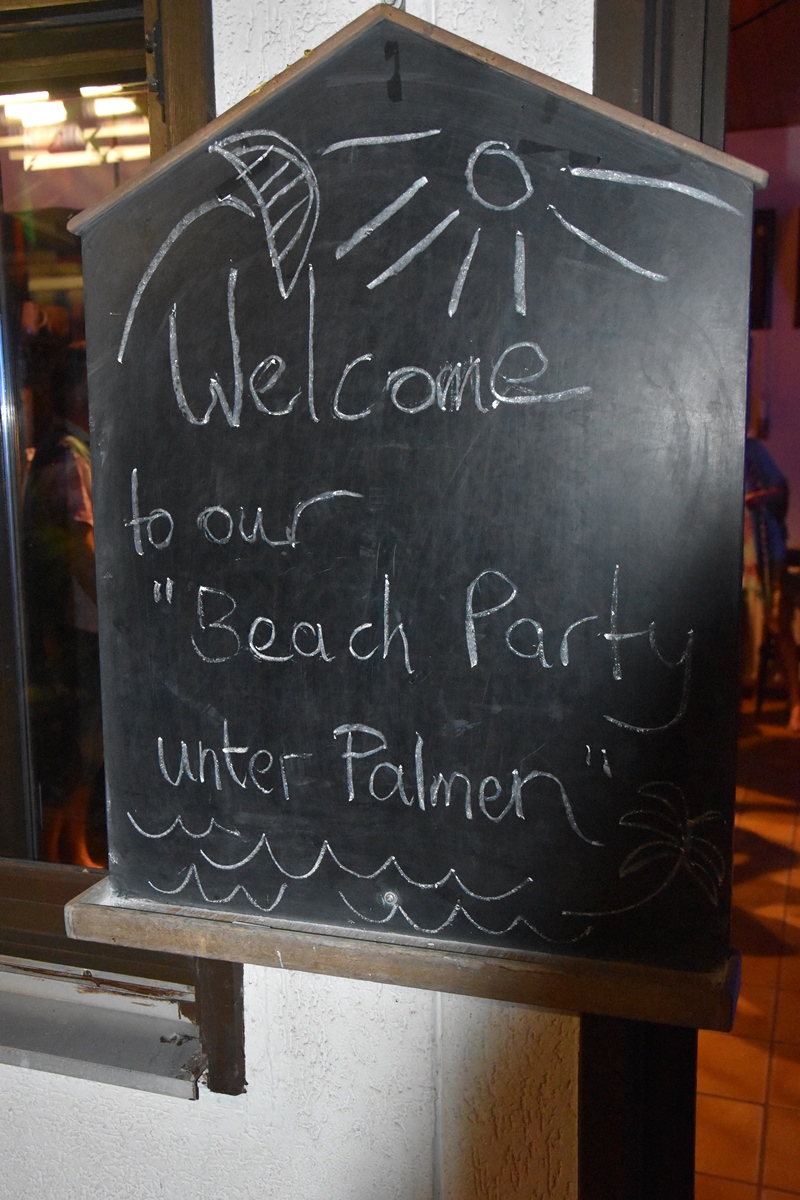 Welcome
to our
"Beach Party
unter Palmen"